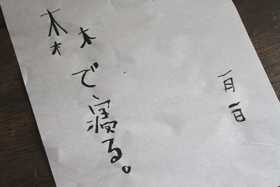 森で寝る。
一月一日